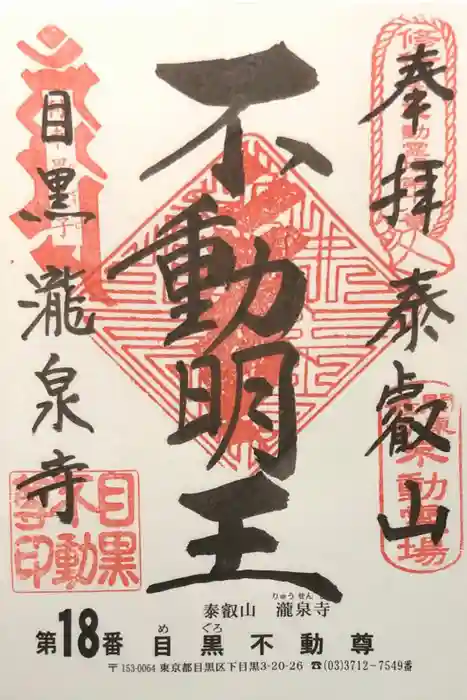 奉拝 泰叡山
不動明王
目黒 瀧泉寺
関東不動霊場
目黒不動尊印
泰叡山 瀧泉寺
りゅうせん
第18番 目黒不動尊
めぐろ
〒153-0064 東京都目黒区下目黒3-20-26 ☎(03)3712-7549番